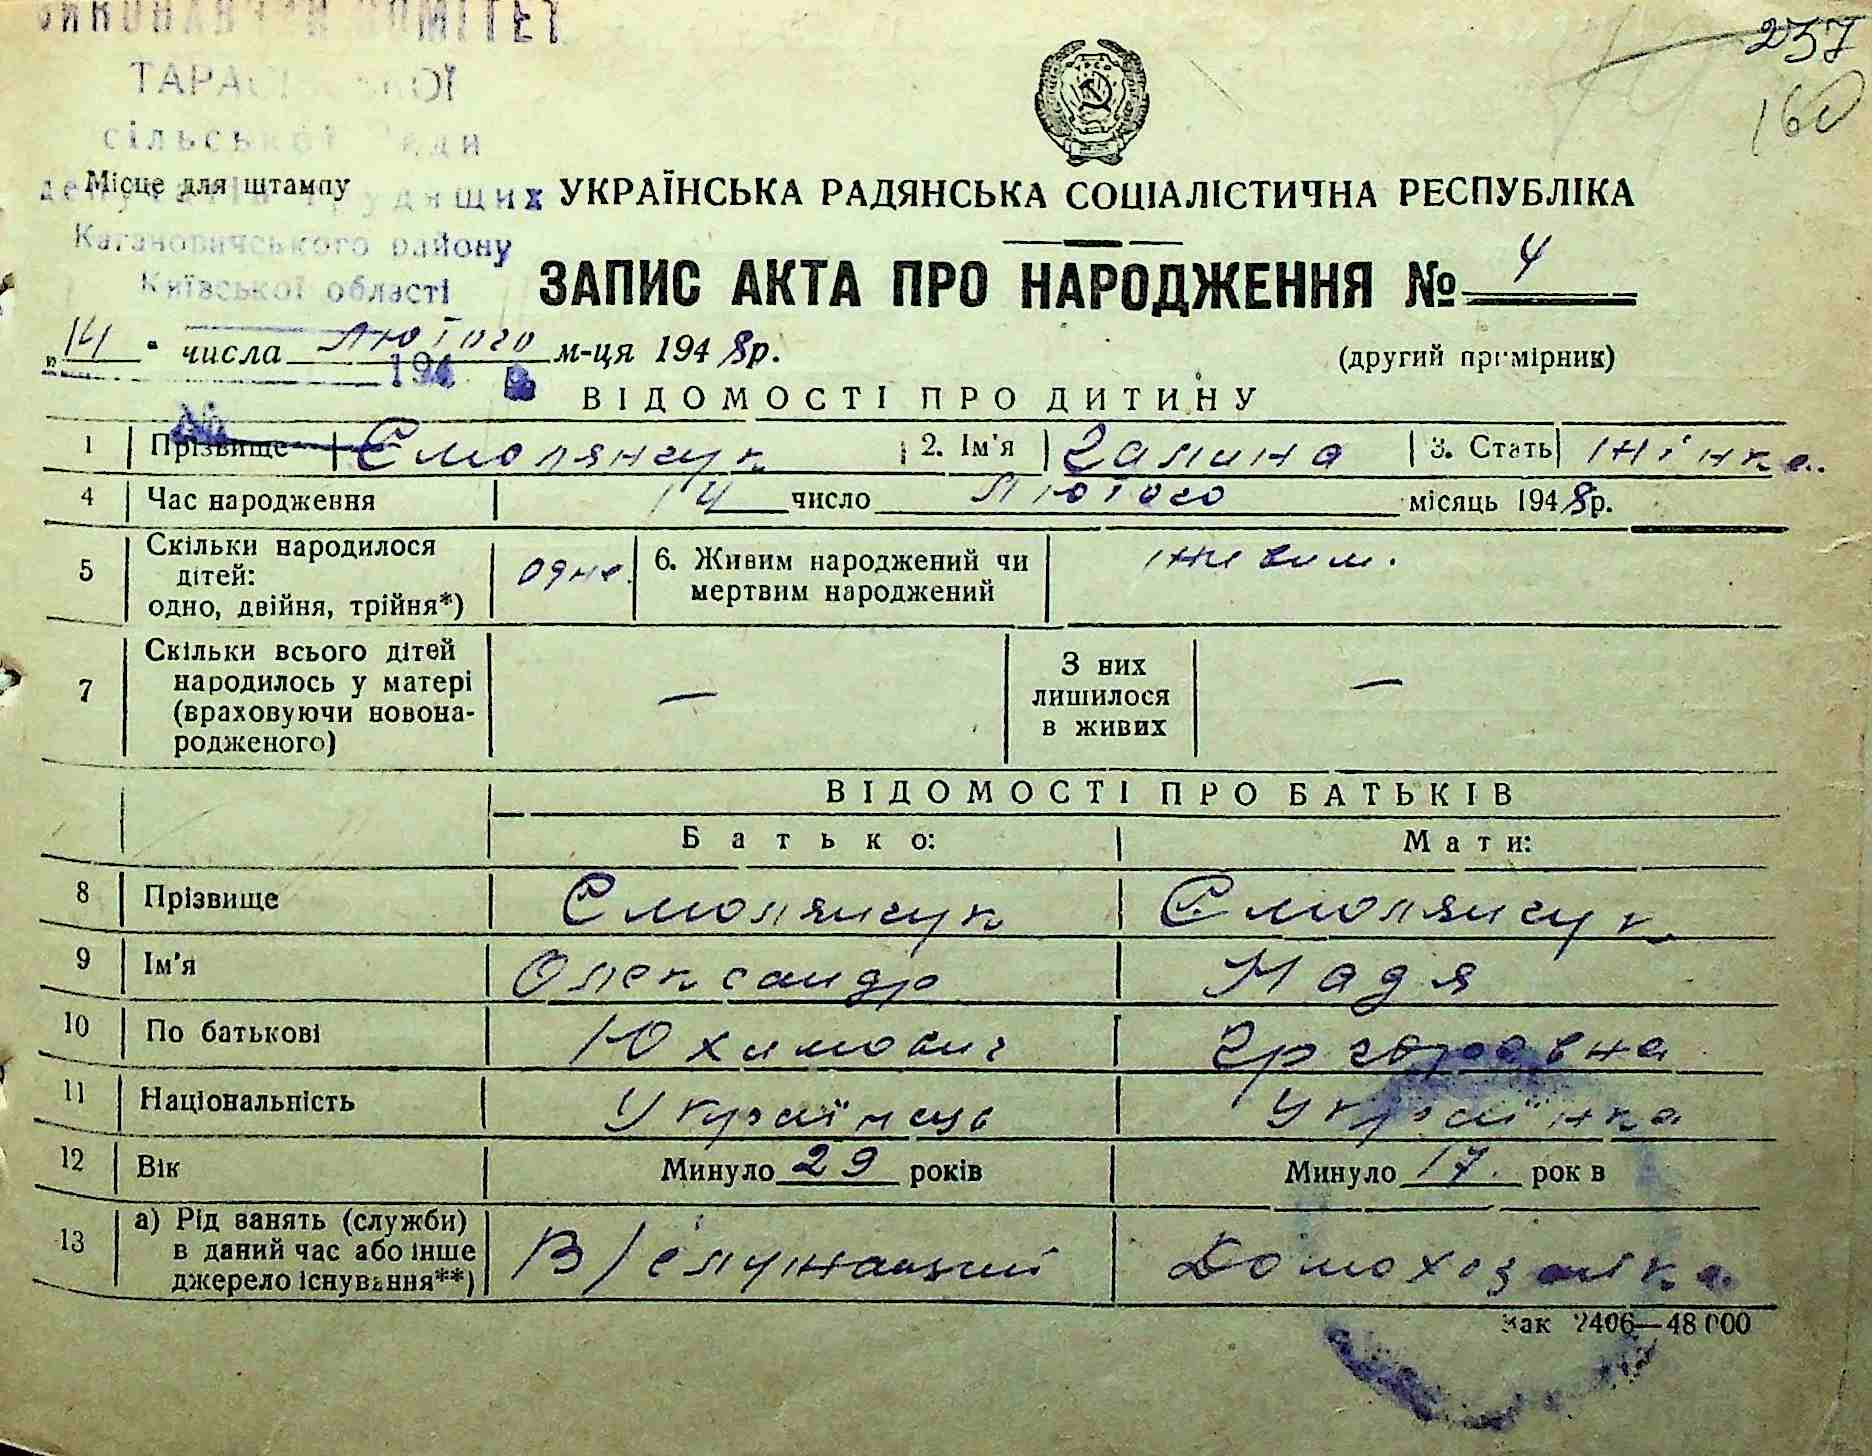 ВИКОНАВЧИЙ КОМІТЕТ
237
160
сільської Ради
депутатів трудящих
Місце для штампу
Кагановичського району
Київської області
УКРАЇНСЬКА РАДЯНСЬКА СОЦІАЛІСТИЧНА РЕСПУБЛІКА
ЗАПИС АКТА ПРО НАРОДЖЕННЯ № 4
„14" числа Лютого м-ця 1948р.
194
(другий примірник)
ВІДОМОСТІ ПРО ДИТИНУ
№
1 Прізвище Смолянчук 2. Ім'я Галина 3. Стать жінка.
4 Час народження 14 число Лютого місяць 1948р.
5 Скільки народилося
дітей:
одно, двійня, трійня*)
одне. 6. Живим народжений чи
мертвим народжений
живим.
7 Скільки всього дітей
народилось у матері
(враховуючи новона-
родженого)
—
З них
лишилося
в живих
—
ВІДОМОСТІ ПРО БАТЬКІВ
Батько: Мати:
8 Прізвище Смолянчук Смолянчук
9 Ім'я Олександр Надя
10 По батькові Юхимович
11 Національність Українець Українка
12 Вік Минуло 29 років Минуло 17. рок в
13 а) Рід занять (служби)
в даний час або інше
джерело існування**)
В/служащий Домохозяйка
Зак 2406—48 000